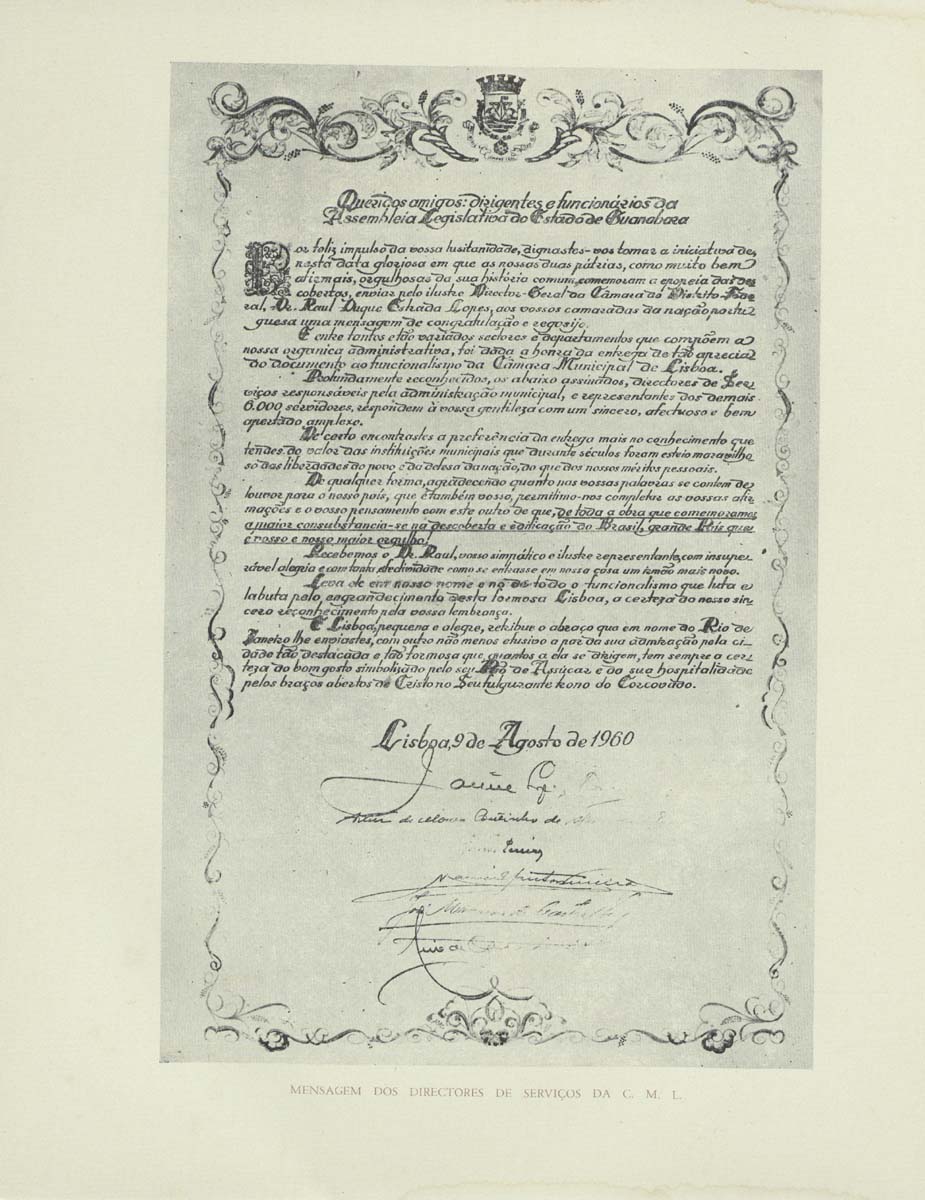 Queridos amigos: dirigentes e funcionários da
Assembleia Legislativa do Estado de Guanabara
Por feliz impulso da vossa lusitanidade, dignastes-vos tomar a iniciativa de,
nesta data gloriosa em que as nossas duas pátrias, como muito bem
afirmais, orgulhosas da sua história comum, comemoram a epopeia das des
cobertas, enviar pelo ilustre Director-Geral da Câmara do Distrito Fede
ral, Dr. Raul Duque Estrada Lopes, aos vossos camaradas da nação portu
guesa uma mensagem de congratulação e regosijo.
E entre tantos e tão variados sectores e departamentos que compõem a
nossa organica administrativa, foi dada a honra da entrega de tão aprecia
do documento ao funcionalismo da Câmara Municipal de Lisboa.
Profundamente reconhecidos, os abaixo assinados, directores de Ser
viços responsáveis pela administração municipal, e representantes dos demais
6.000 servidores, respondem à vossa gentileza com um sincero, afectuoso e bem
apertado amplexo.
De certo encontrastes a preferência da entrega mais no conhecimento que
tendes do valor das instituições municipais que durante séculos foram esteio maravilho
so das liberdades do povo e da defesa da nação, do que dos nossos méritos pessoais.
De qualquer forma, agradecendo quanto nas vossas palavras se contem de
louvor para o nosso país, que é também vosso, permitimo-nos completar as vossas afir
mações e o vosso pensamento com este outro de que, de toda a obra que comemoramos
a maior consubstancia-se na descoberta e edificação do Brasil, grande País que
é vosso e nosso maior orgulho!
Recebemos o Dr. Raul, vosso simpático e ilustre representante, com insupe
rável alegria e com tanta afectividade como se entrasse em nossa casa um irmão mais novo.
Leva ele em nosso nome e no de todo o funcionalismo que luta e
labuta pelo engrandecimento desta formosa Lisboa, a certeza do nosso sin
cero reconhecimento pela vossa lembrança.
E Lisboa, pequena e alegre, retribue o abraço que em nome do Rio de
Janeiro lhe enviastes, com outro não menos efusivo a par da sua admiração pela ci
dade tão destacada e tão formosa que quantos a ela se dirigem, tem sempre a cer
teza do bom gosto simbolizado pelo seu Pão de Assúcar e da sua hospitalidade
pelos braços abertos de Cristo no Seu fulgurante trono do Corcovado.
Lisboa, 9 de Agosto de 1960
Jaime
Coutinho de
José
MENSAGEM DOS DIRECTORES DE SERVIÇOS DA C. M. L.